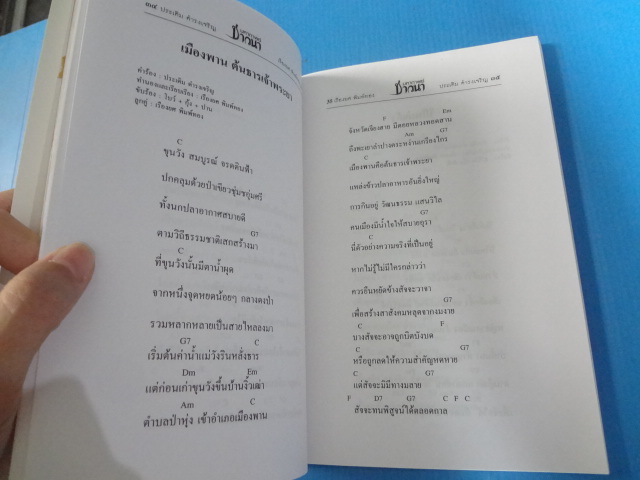 ๓๔ ประเดิม ดำรงเจริญ
ชาวนา
เมืองพาน ต้นธารเจ้าพระยา
คำร้อง : ประเดิม ดำรงเจริญ
ทำนองและเรียบเรียง : เรืองยศ พิมพ์ทอง
ขับร้อง : โบว์ + กุ้ง + ปาน
ลูกคู่ : เรืองยศ พิมพ์ทอง
C
ขุนวัง สมบูรณ์ จรดดินฟ้า
ปกคลุมด้วยป่าเขียวชุ่มชอุ่มศรี
ทั้งนกปลาอากาศสบายดี
G7
ตามวิถีธรรมชาติเสกสร้างมา
C
ที่ขุนวังนั้นมีตาน้ำผุด
จากหนึ่งจุดหยดน้อยๆ กลางดงป่า
รวมหลากหลายเป็นสายไหลลงมา
G7 C
เริ่มต้นค่าน้ำแม่วังรินหลั่งธาร
Dm Em
แต่ก่อนเก่าขุนวังขึ้นบ้านงิ้วเฒ่า
Am C
ตำบลป่าหุ่ง เข้าอำเภอเมืองพาน
เรืองยศ พิมพ์ทอง
ชาวนา
ประเดิม ดำรงเจริญ ๓๕
F Em
จังหวัดเชียงราย มีดอยหลวงทอดสาน
Am G7
ถึงพะเยาลำปางตระหง่านเกรียงไกร
C
เมืองพานคือต้นธารเจ้าพระยา
แหล่งข้าวปลาอาหารอันยิ่งใหญ่
การกินอยู่ วัฒนธรรม แสนวิไล
G7
คนเมืองมีน้ำใจให้สบายอุรา
C
นี่ตัวอย่างความจริงที่เป็นอยู่
หากไม่รู้ไม่มีใครกล่าวว่า
ควรยืนหยัดข้างสัจจะวาจา
G7
เพื่อสร้างสาสังคมหลุดจากงมงาย
C F
บางสัจจะอาจถูกบิดบังบด
C G7
หรือถูกลดให้ความสำคัญหดหาย
C
แต่สัจจะมิมีทางมลาย
F D7 G7 C F C
สัจจะทนพิสูจน์ได้ตลอดกาล